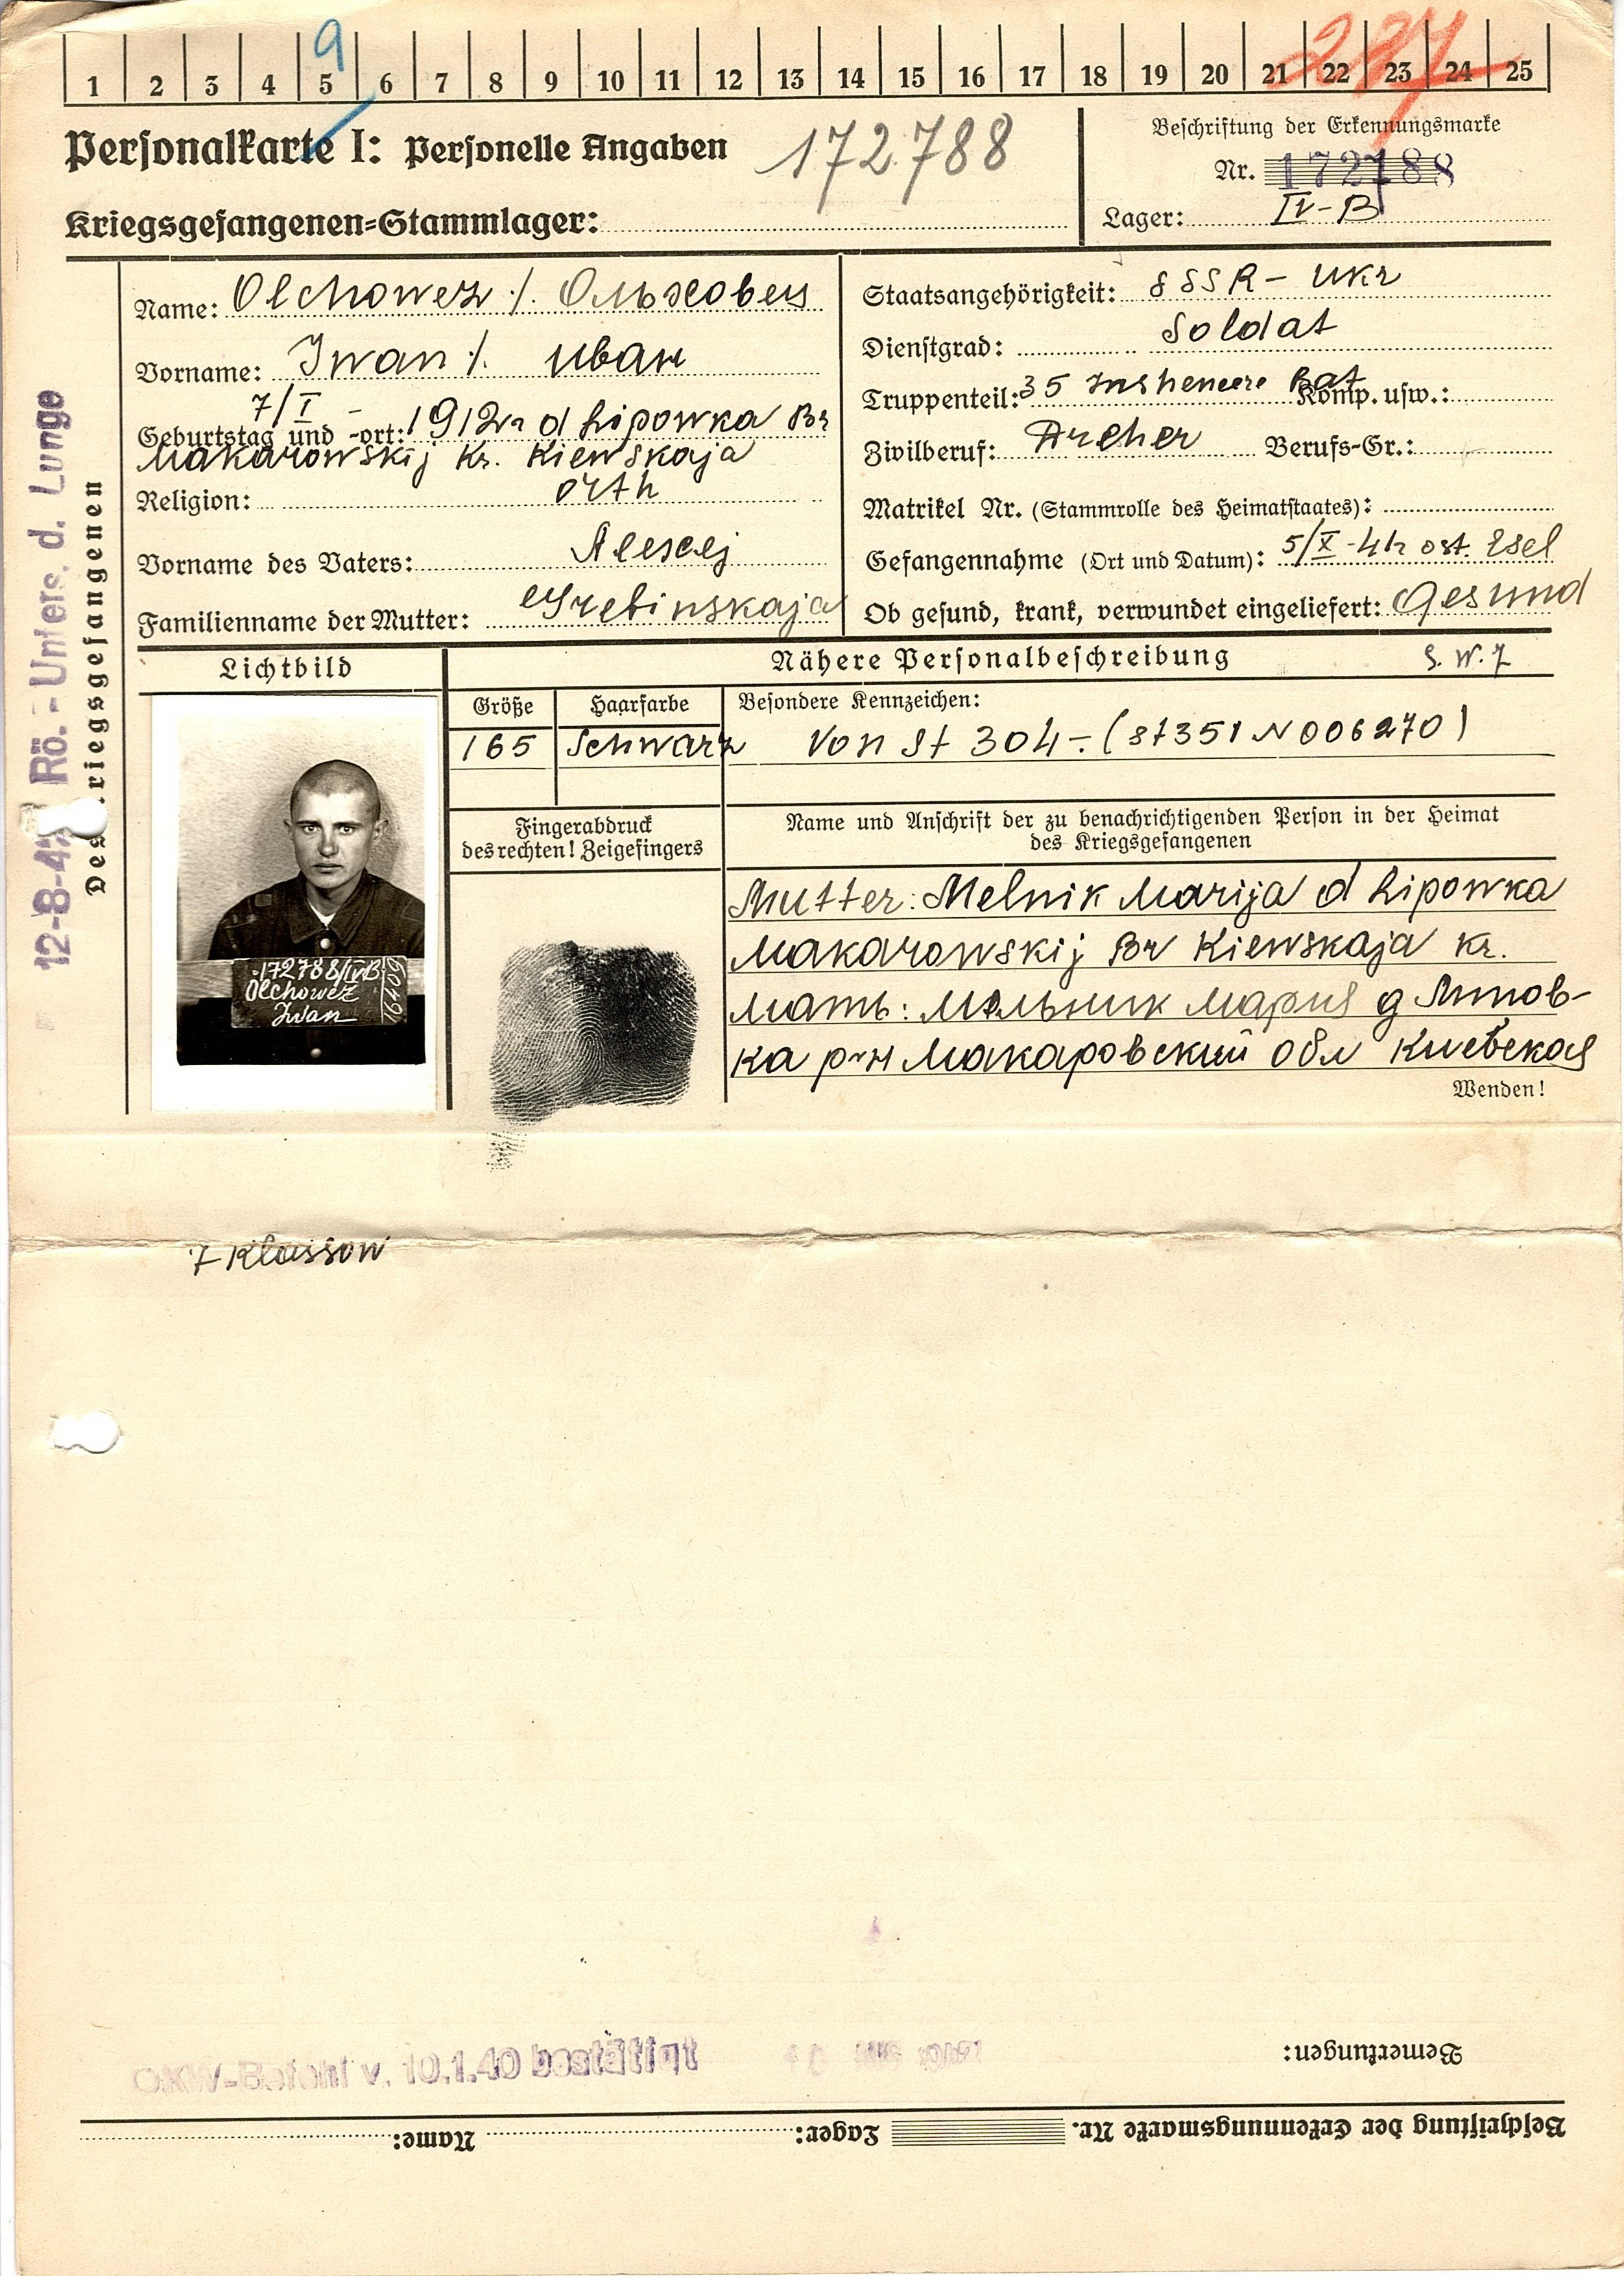 9
227
1 2 3 4 5 6 7 8 9 10 11 12 13 14 15 16 17 18 19 20 21 22 23 24 25
Personalkarte I: Personelle Angaben 172788
Kriegsgefangenen=Stammlager:
Beschriftung der Erkennungsmarke
Nr. 172788
Lager: IV-B
12-8-42 Rö.-Unters. d. Lunge
Des Kriegsgefangenen
Name: Olchowez ./. Ольховец
Vorname: Iwan ./. Иван
7/I -
Geburtstag und -ort: 1912 d Lipowka Br
Makarowskij Kr. Kiewskaja
Religion: orth
Vorname des Vaters: Alescej
Familienname der Mutter: Grebinskaja
Staatsangehörigkeit: SSSR - Ukr
Dienstgrad: Soldat
Truppenteil: 35 Inshenere Bat Komp. usw.:
Zivilberuf: Dreher Berufs-Gr.:
Matrikel Nr. (Stammrolle des Heimatstaates):
Gefangennahme (Ort und Datum): 5/X-41 ost. Esel
Ob gesund, krank, verwundet eingeliefert: Gesund
Lichtbild
Nähere Personalbeschreibung
Größe Haarfarbe Besondere Kennzeichen:
165 Schwarz Von St 304-(St 351 N006270)
Fingerabdruck
des rechten! Zeigefingers
Name und Anschrift der zu benachrichtigenden Person in der Heimat
des Kriegsgefangenen
Mutter: Melnik Marija d Lipowka
Makarowskij Br Kiewskaja Kr.
Мать: Мельник Мария д Липов-
ка р-н Макаровский обл Киевская
Wenden!
172788/IVB
Olchowez
Iwan
7 Klassow
OKW-Befehl v. 10.1.40 bestätigt
Bemerkungen:
Beschriftung der Erkennungsmarke Nr. Lager: Name: